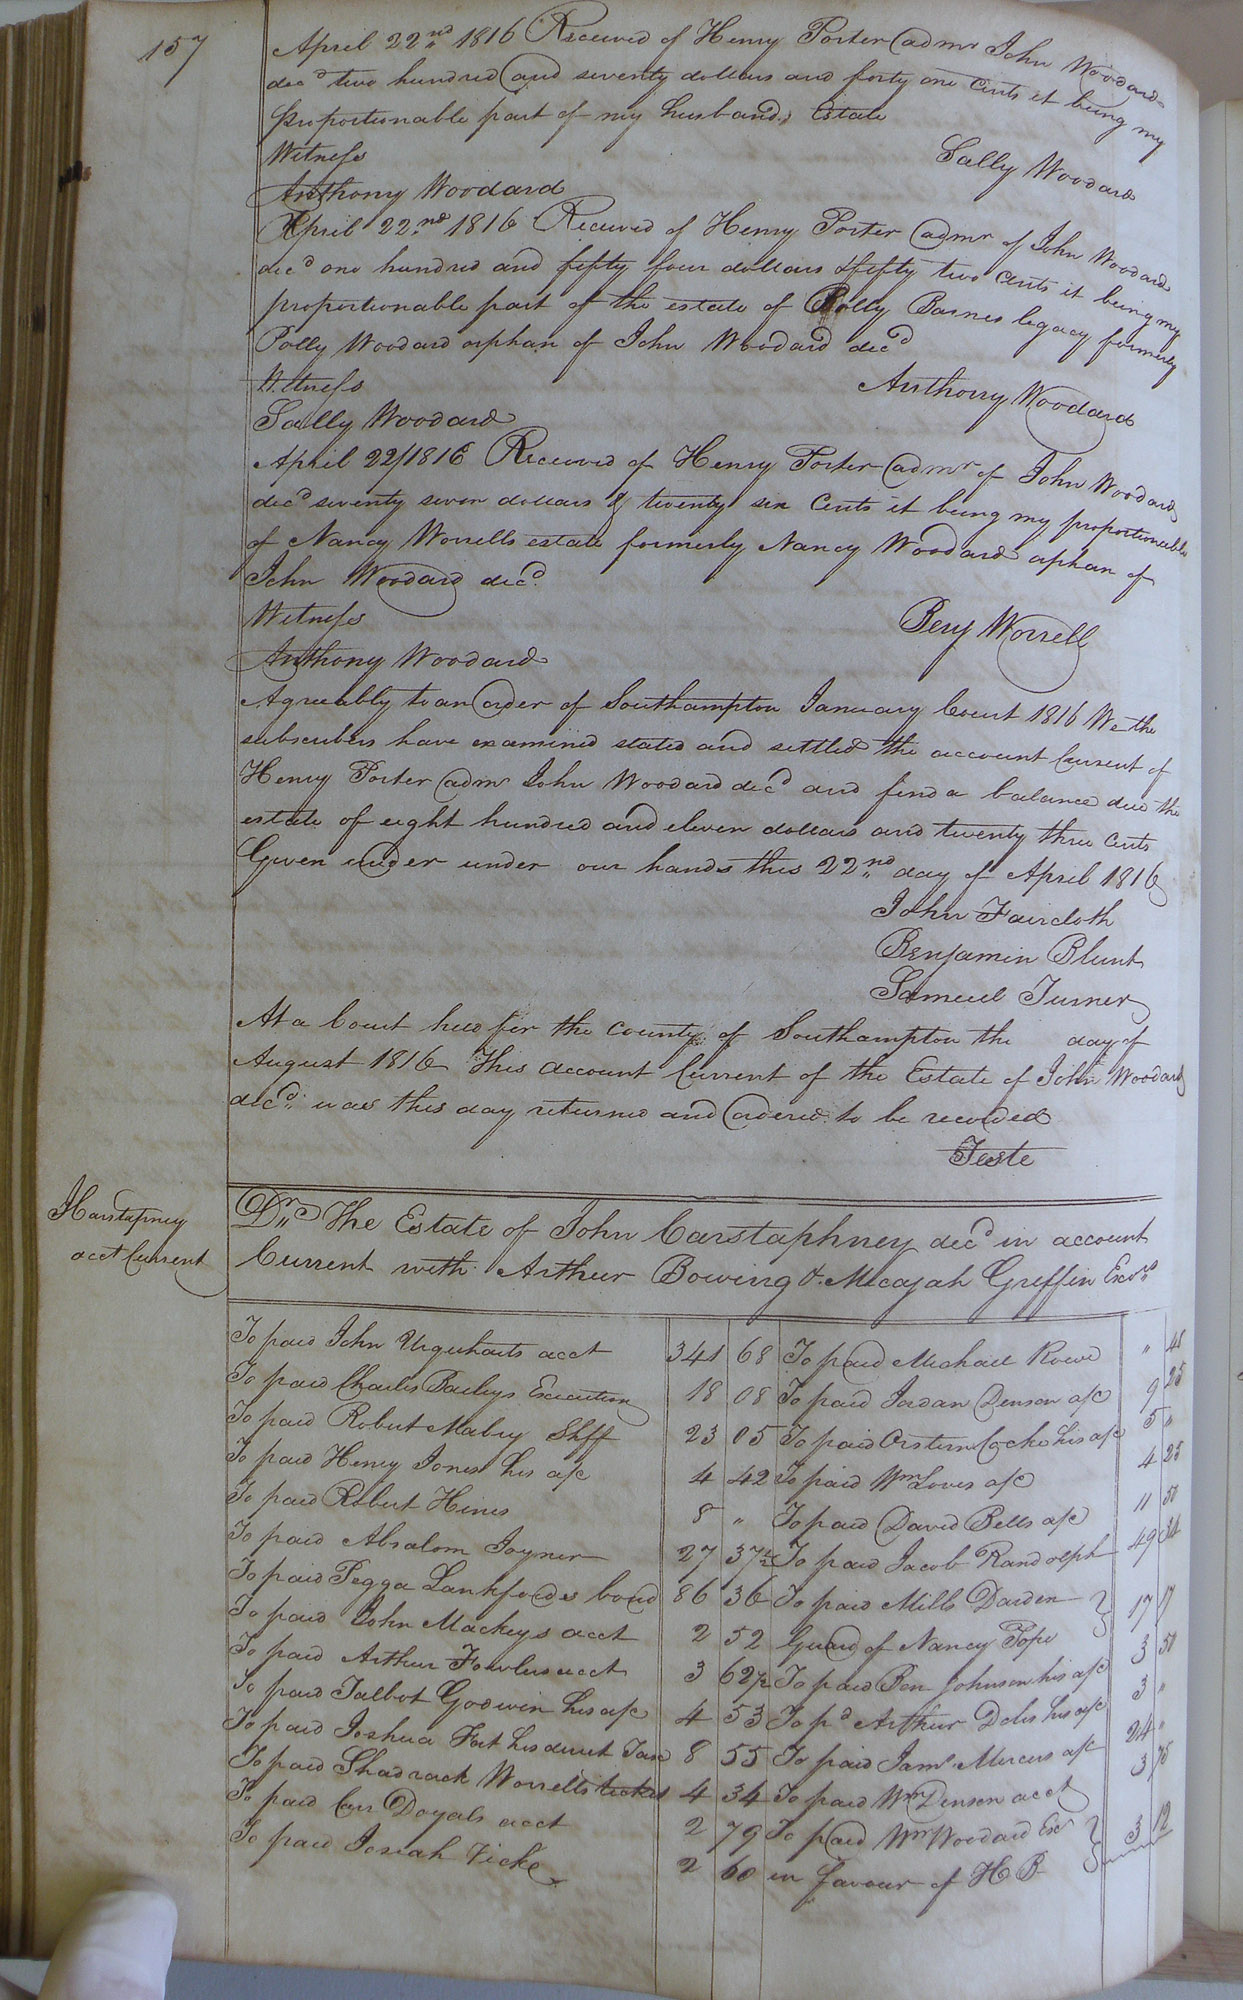 157
April 22nd 1816 Received of Henry Porter admr John Woodard
decd two hundred and seventy dollars and forty one Cents it being my
proportionable part of my husbands Estate
Witness Sally Woodard
Anthony Woodard
April 22nd 1816 Received of Henry Porter admr of John Woodard
decd one hundred and fifty four dollars & fifty two Cents it being my
proportionable part of the estate of Polly Barnes legacy formerly
Polly Woodard orphan of John Woodard decd
Witness Anthony Woodard
Sally Woodard
April 22/1816 Received of Henry Porter admr of John Woodard
decd seventy seven dollars & twenty six Cents it being my proportionable
of Nancy Worrells estate formerly Nancy Woodard orphan of
John Woodard decd
Witness Benj Worrell
Anthony Woodard
Agreeably to an order of Southampton January Court 1816 We the
subscribers have examined stated and settled the account Current of
Henry Porter admr John Woodard decd and find a balance due the
estate of eight hundred and eleven dollars and twenty three Cents
Given under under our hands this 22nd day of April 1816
John Faircloth
Benjamin Blunt
Samuel Turner
At a Court held for the County of Southampton the day of
August 1816 This account Current of the Estate of John Woodard
decd was this day returned and ordered to be recorded
Teste
J Carstapney
acct Current
Dr The Estate of John Carstaphney decd in account
Current with Arthur Bowing & Micajah Griffin Exors
To paid John Urquharts acct 341 68 To paid Michael Rowe " 48
To paid Charles Baileys Execution 18 08 To paid Jordan Denson a/c 9 25
To paid Robert Mabry Shff 23 05 To paid Cocke his a/c 5 "
To paid Henry Jones his a/c 4 42 To paid Wm Loves a/c 4 25
To paid Robert Hines 8 " To paid David Bells a/c 11 50
To paid Absalom Joyner 27 37½ To paid Jacob Randolph 49 34
To paid Pegga Lankfords bond 86 36 To paid Mills Darden } 17 17
To paid John Mackeys acct 2 52 Guard of Nancy Pope
To paid Arthur Fowlers acct 3 62½ To paid Ben Johnson his a/c 3 50
To paid Talbot Godwin his a/c 4 53 To pd Arthur Doles his a/c 3 "
To paid Joshua Fort his direct Tax 8 55 To paid Jams Mercers a/c 24 "
To paid Shadrack Worrells ticket 4 34 To paid Wm Denson acct 3 75
To paid Carr Doyals acct 2 79 To paid Wm Woodard Exr } 3 12
To paid Josiah Vick 2 60 in favour of H B